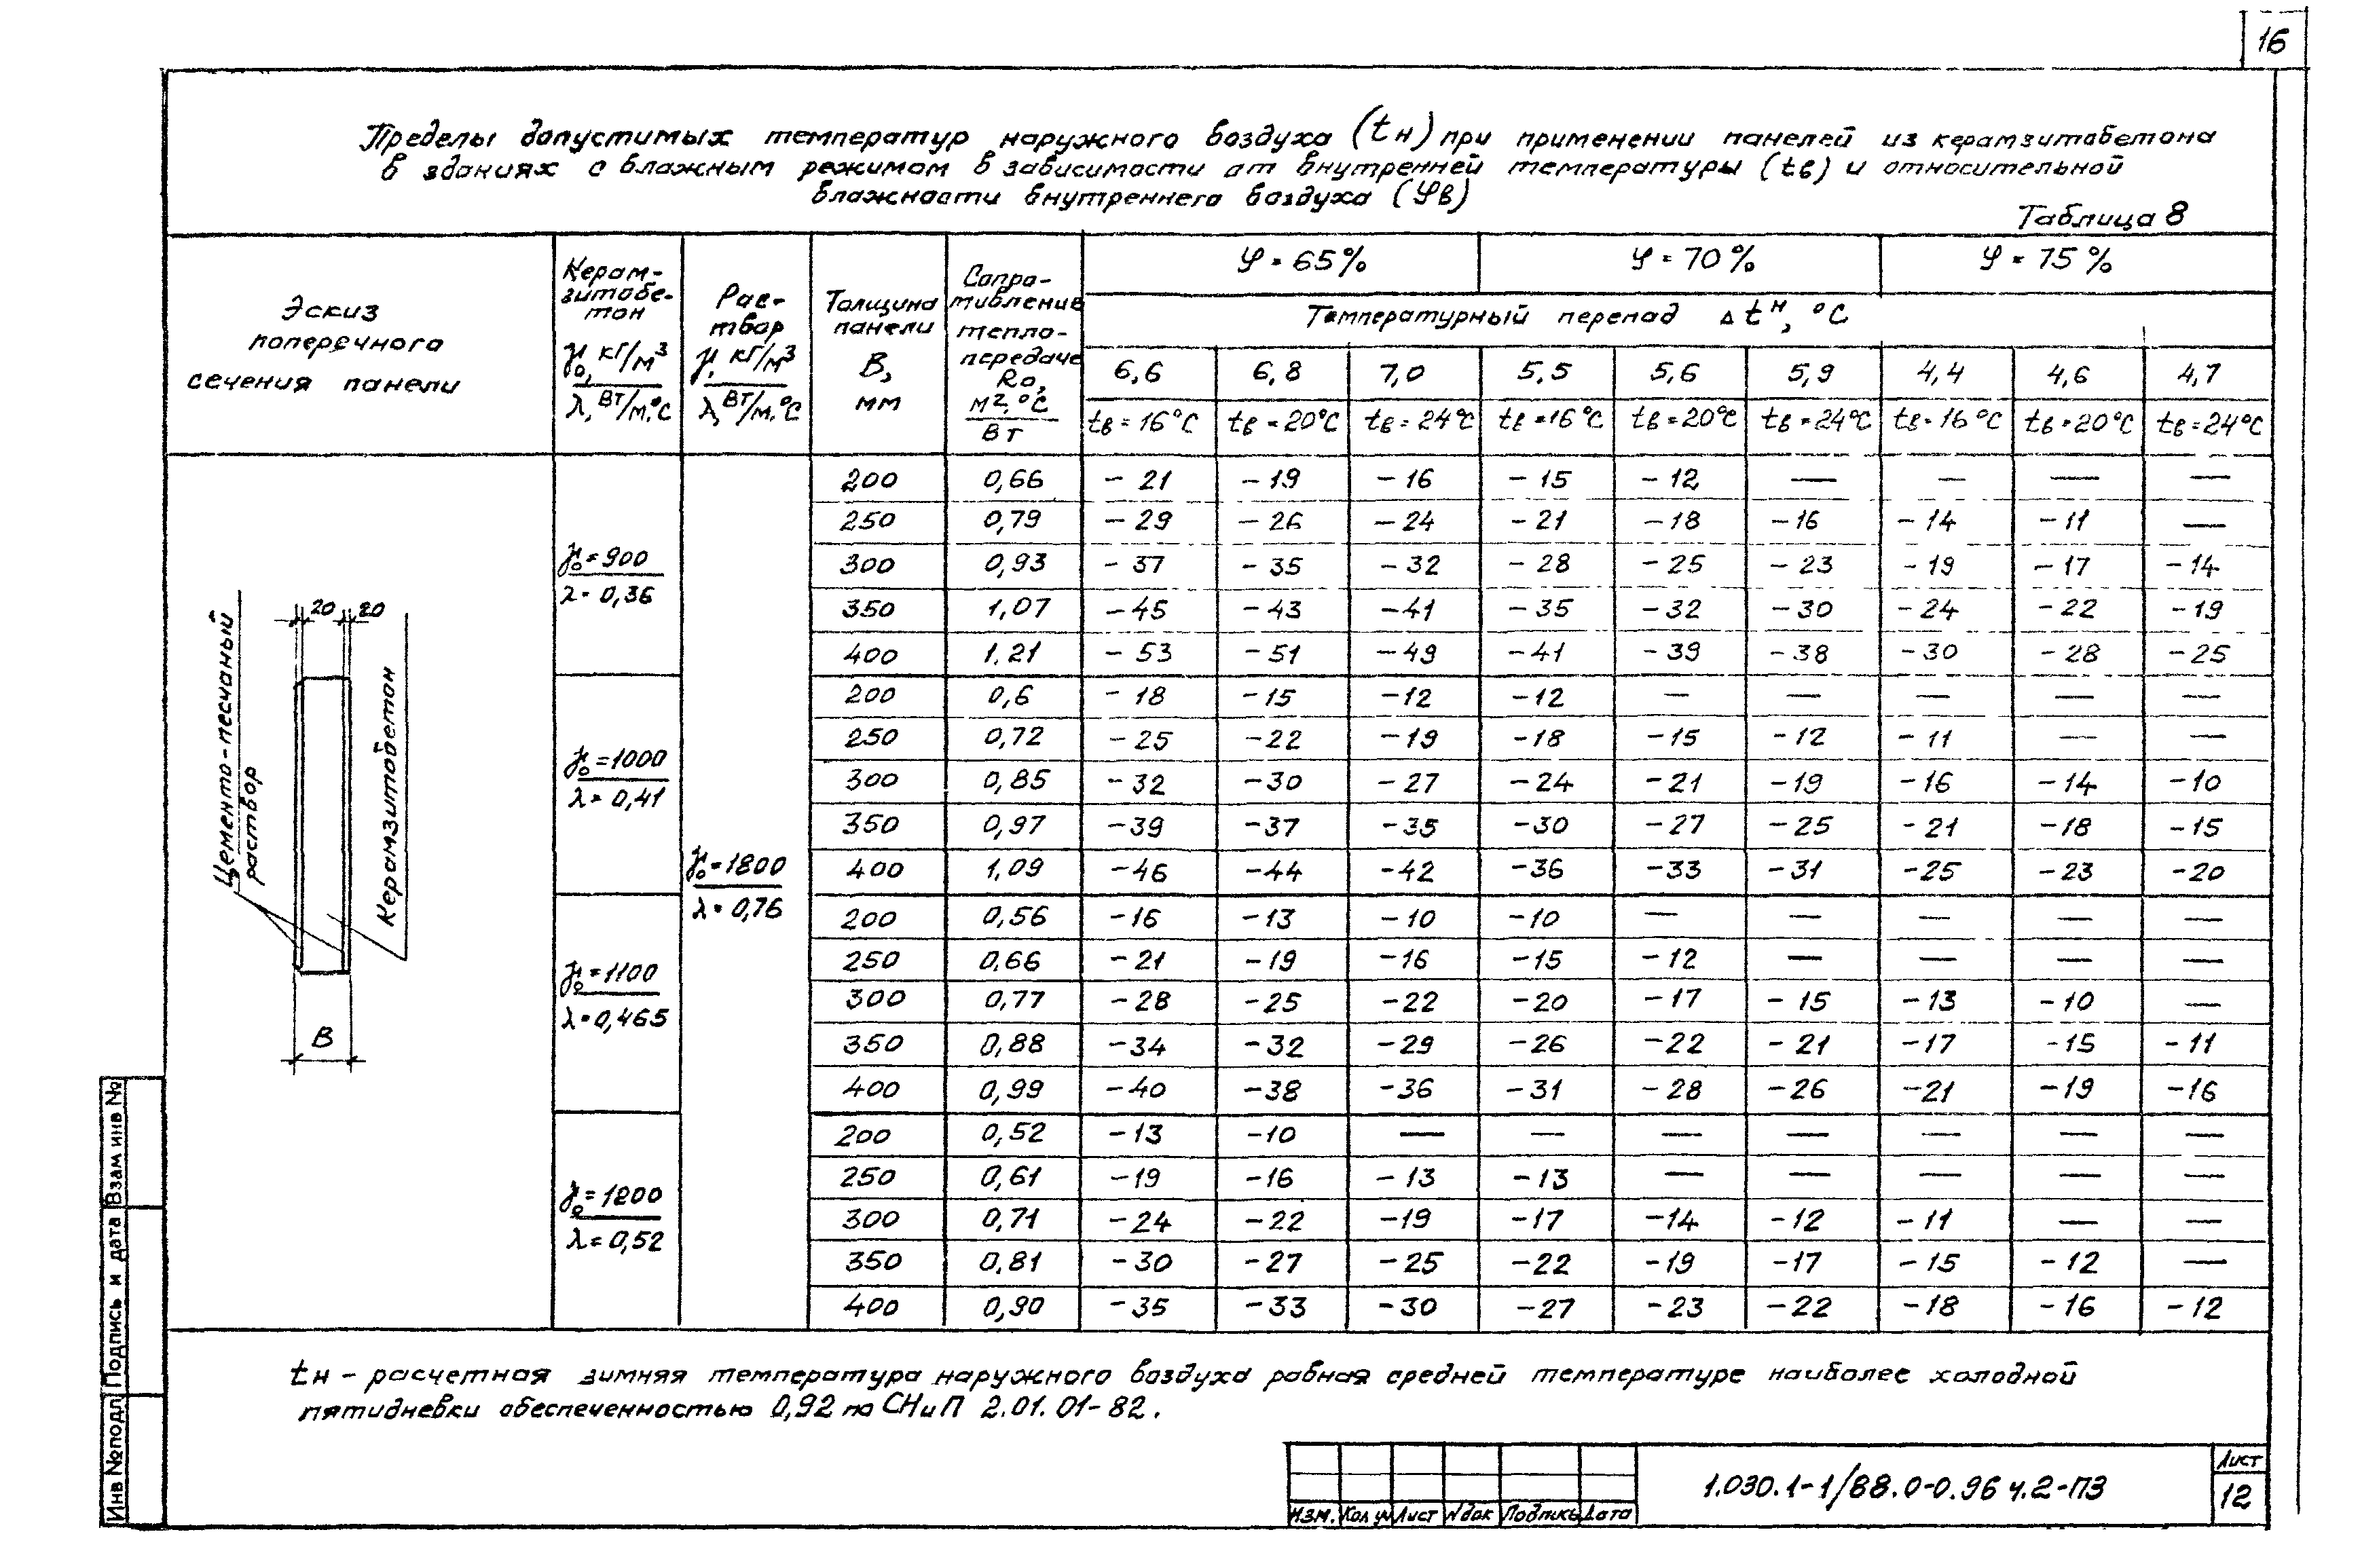 16
Пределы допустимых температур наружного воздуха (tн) при применении панелей из керамзитобетона
в зданиях с влажным режимом в зависимости от внутренней температуры (tв) и относительной
влажности внутреннего воздуха (φв)
Таблица 8
Эскиз поперечного сечения панели
Керамзитобетон γ₀, кг/м³ / λ, Вт/м.°С
Раствор γ, кг/м³ / λ, Вт/м.°С
Толщина панели В, мм
Сопротивление теплопередаче Rо, м².°С / Вт
φ = 65% φ = 70% φ = 75%
Температурный перепад Δtн, °С
6,6 6,8 7,0 5,5 5,6 5,9 4,4 4,6 4,7
tв = 16°С tв = 20°С tв = 24°С tв = 16°С tв = 20°С tв = 24°С tв = 16°С tв = 20°С tв = 24°С
γ₀ = 900
λ = 0,36
200 0,66 -21 -19 -16 -15 -12 — — — —
250 0,79 -29 -26 -24 -21 -18 -16 -14 -11 —
300 0,93 -37 -35 -32 -28 -25 -23 -19 -17 -14
350 1,07 -45 -43 -41 -35 -32 -30 -24 -22 -19
400 1.21 -53 -51 -49 -41 -39 -38 -30 -28 -25
γ₀ = 1000
λ = 0,41
200 0,6 -18 -15 -12 -12 — — — — —
250 0,72 -25 -22 -19 -18 -15 -12 -11 — —
300 0,85 -32 -30 -27 -24 -21 -19 -16 -14 -10
350 0,97 -39 -37 -35 -30 -27 -25 -21 -18 -15
400 1,09 -46 -44 -42 -36 -33 -31 -25 -23 -20
γ₀ = 1800
λ = 0,76
γ₀ = 1100
λ = 0,465
200 0,56 -16 -13 -10 -10 — — — — —
250 0,66 -21 -19 -16 -15 -12 — — — —
300 0,77 -28 -25 -22 -20 -17 -15 -13 -10 —
350 0,88 -34 -32 -29 -26 -22 -21 -17 -15 -11
400 0,99 -40 -38 -36 -31 -28 -26 -21 -19 -16
γ₀ = 1200
λ = 0,52
200 0,52 -13 -10 — — — — — — —
250 0,61 -19 -16 -13 -13 — — — — —
300 0,71 -24 -22 -19 -17 -14 -12 -11 — —
350 0,81 -30 -27 -25 -22 -19 -17 -15 -12 —
400 0,90 -35 -33 -30 -27 -23 -22 -18 -16 -12
20 20
Цементо-песчаный
раствор
Керамзитобетон
В
tн - расчетная зимняя температура наружного воздуха равная средней температуре наиболее холодной
пятидневки обеспеченностью 0,92 по СНиП 2.01.01-82.
Инв №подл. Подпись и дата Взам инв №
Изм. Кол уч Лист №док Подпись Дата
1.030.1-1/88.0-0.96 ч.2-ПЗ
Лист
12